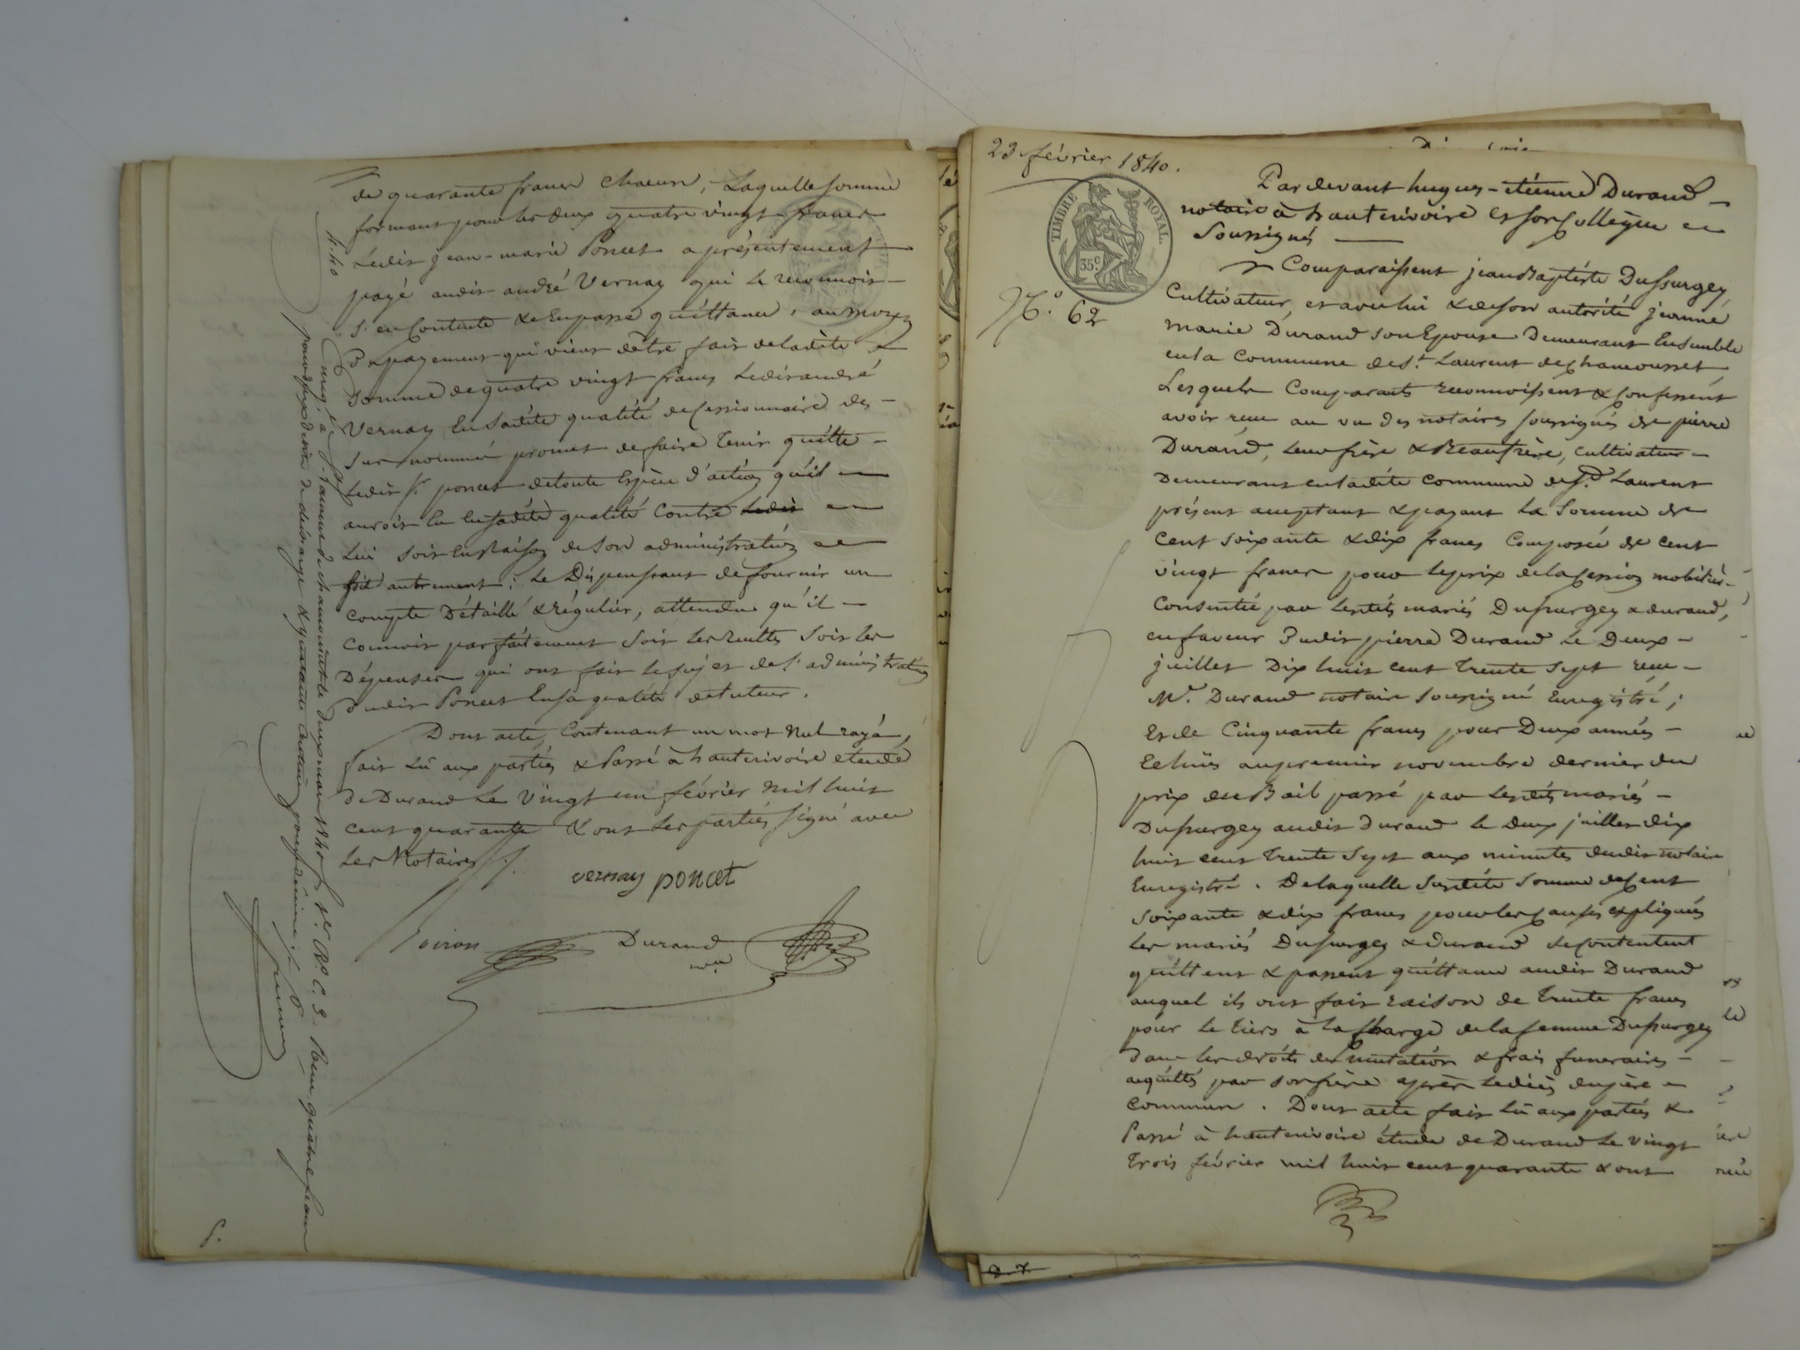 de quarante francs chacun, Laquelle somme
formant pour les deux quatre vingt francs
Ledit jean-marie Poncet a présentement
payé audit andré Vernay qui le reconnoit
s'en Contente & En passe quittance, au moyen
Du payement qui vient d'être fait de ladite
Somme de quatre vingt francs Ledit andré
Vernay En sadite qualité de Cessionnaire des
sus nommés promet de faire tenir quitte
Ledit Sr poncet de toute Espèce d'action qu'il
auroit Eu En sadite qualité Contre Ledit
Lui soit En Raison de son administration
soit autrement; Le Dispensant de fournir un
compte Détaillé & Régulier, attendu qu'il
connoit parfaitement soit les recettes soit les
Dépenses qui ont fait le sujet de l'administration
dudit Poncet En sa qualité de tuteur.
Dont acte, Contenant un mot Nul rayé,
fait Lû aux parties & Passé à hauterivoire etude
de Durand Le Vingt un février Mil huit
cent quarante & ont Les parties signé avec
Les Notaires
vernay poncet
Durand
Enreg. à St Laurent de chamousset le deux mars 1840 fo R.o C. 3. Reçu quatre francs
pour & quarante centimes pour décime.
23 février 1840.
TIMBRE ROYAL
35 c
No. 62
Pardevant hugues-etienne Durand
notaire à hauterivoire et son Collègue
Soussignés
Comparaissent jean Baptiste Dussurgey
Cultivateur, et avec lui & de son autorité jeanne
marie Durand son Epouse Demeurant Ensemble
en la Commune de St Laurent de chamousset
Lesquels Comparants reconnoissent & Confessent
avoir reçu au vu des notaires soussignés de pierre
Durand, Leur frère & Beaufrère, cultivateur
Demeurant en ladite commune de St Laurent
présent acceptant & payant La Somme de
cent soixante & dix francs Composée de cent
vingt francs pour le prix de la Cession mobilière
Consentie par lesdits mariés Dussurgey & durand,
en faveur Dudit pierre Durand Le Deux
juillet Dix huit cent trente sept reçu
Me Durand notaire soussigné Enregistré;
Et de Cinquante francs pour Deux années
Echües au premier novembre dernier du
prix du Bail passé par lesdits mariés
Dussurgey audit durand le deux juillet dix
huit cent trente sept aux minutes dudit notaire
Enregistré. De laquelle Susdite somme de Cent
soixante & dix francs pour les Causes expliquées
Les mariés Dussurgey & durand se contentent
quittent & passent quittance audit Durand
auquel ils ont fait raison de trente francs
pour le tiers à la Charge de la femme Dussurgey
dans les droits de mutation & frais funeraires
acquittés par son frère après le décès du père
commun. Dont acte fait Lû aux parties &
Passé à hauterivoire étude de Durand Le vingt
trois février mil huit cent quarante & ont